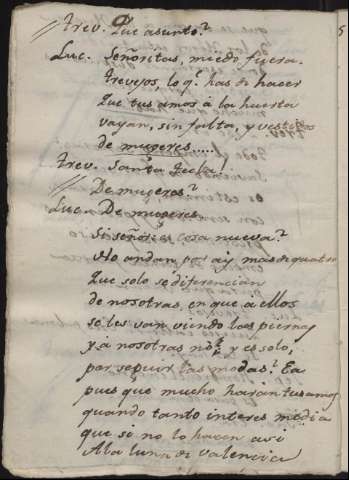 Trev. Que asunto?
Luc. Señoritas, miedo fuera.
Trevejos, lo q.e has de hacer
Que tus amos á la huerta
vayan, sin falta, y vestidos
de mugeres.....
Trev. Santa Tecla!
De mugeres?
Luc. De mugeres
Si señor: es cosa nueva?
No andan por ay mas de quatro
Que solo se diferencian
de nosotras, en que á ellos
se les van viendo las piernas
y á nosotras no? y es solo,
por seguir las modas? Ea
pues que mucho harán tus amos
quando tanto interes media
que si no lo hacen asi
A la luna de Valencia